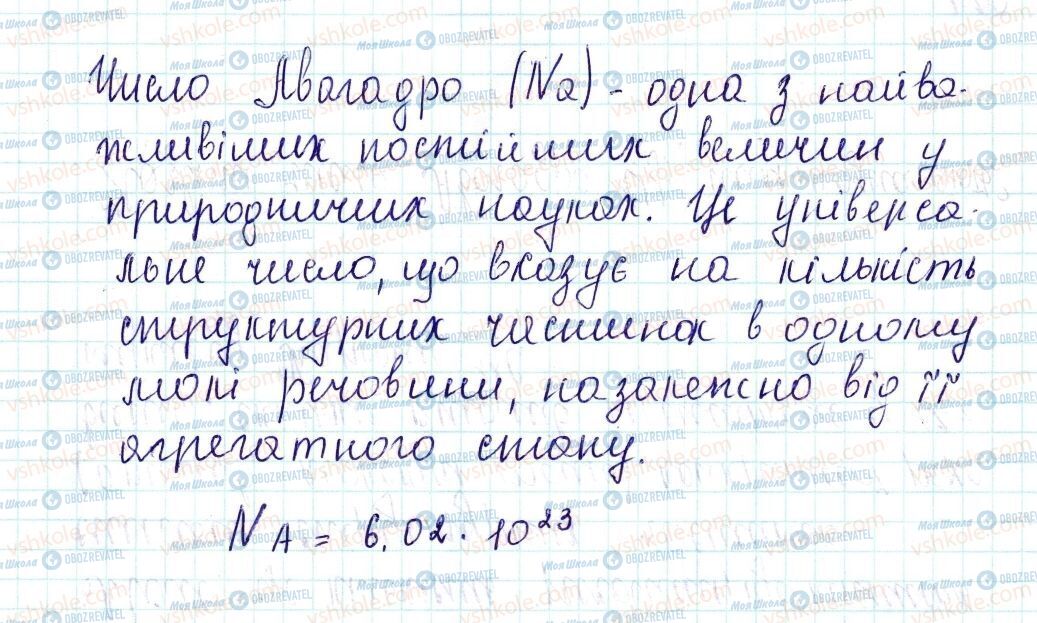 Число Авагадро (Na) - одна з найва-
жливіших постійних величин у
природничих науках. Це універса-
льне число, що вказує на кількість
структурних частинок в одному
молі речовини, назалежно від її
агрегатного стану.
N A = 6,02 · 10²³